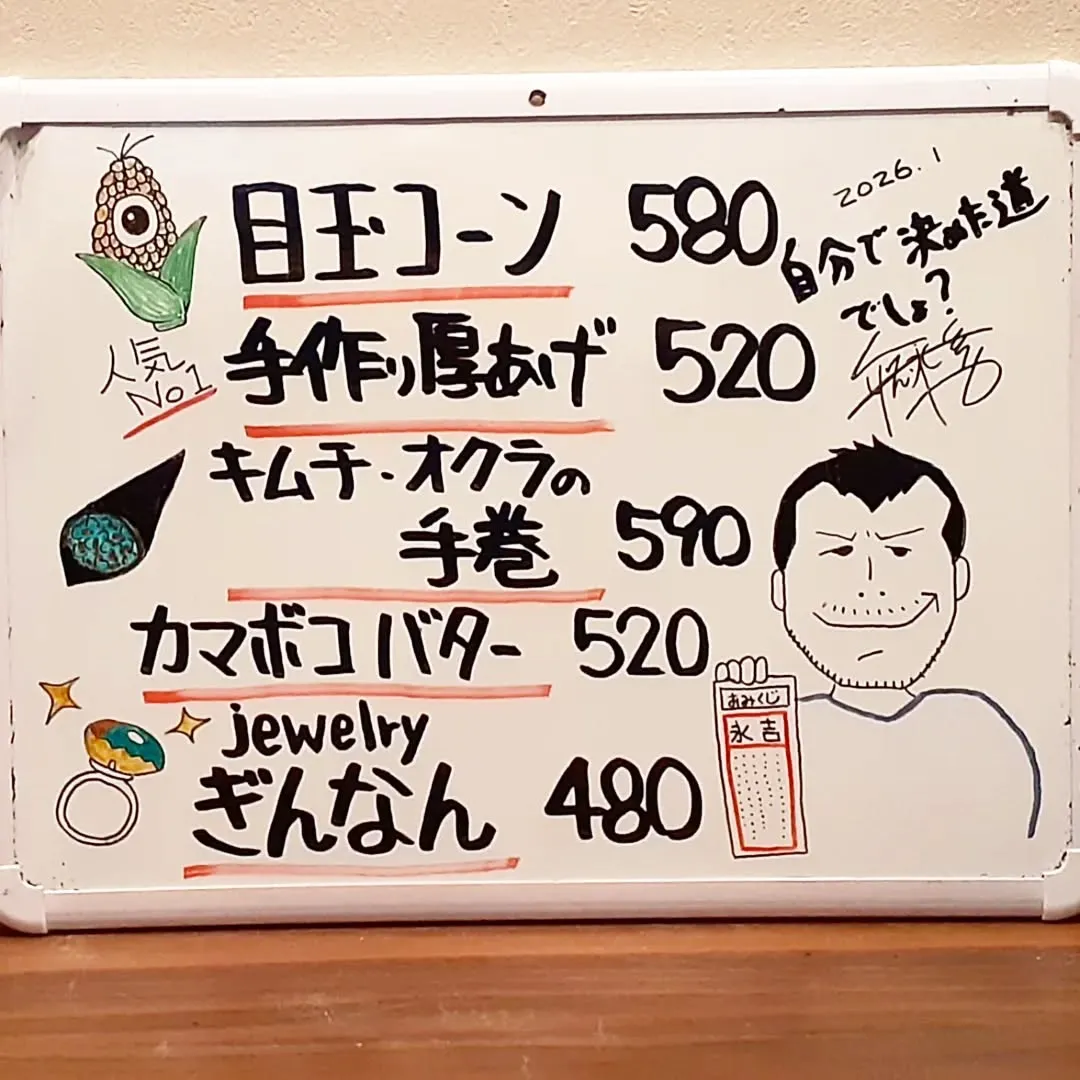 2026.1
自分で決めた道
でしょ?
目玉コーン 580
人気
No1
手作り厚あげ 520
キムチ・オクラの
手巻 590
カマボコバター 520
jewelry
ぎんなん 480
おみくじ
永吉